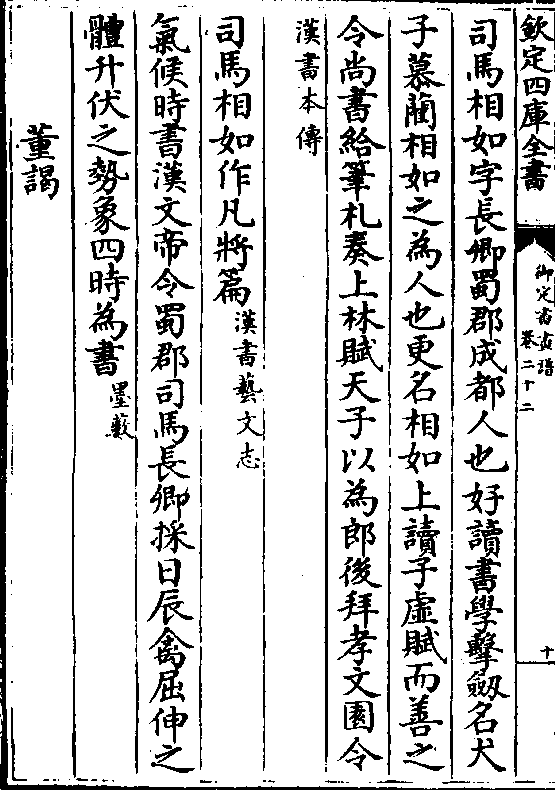 欽定四庫全書
御定書畫譜
卷二十二
十
司馬相如字長卿蜀郡成都人也好讀書學擊劔名犬
子慕藺相如之為人也更名相如上讀子虛賦而善之
令尚書給筆札奏上林賦天子以為郎後拜孝文園令
漢書本傳
司馬相如作凡將篇漢書藝文志
氣候時書漢文帝令蜀郡司馬長卿採日辰禽屈伸之
體升伏之勢象四時為書墨藪
董謁